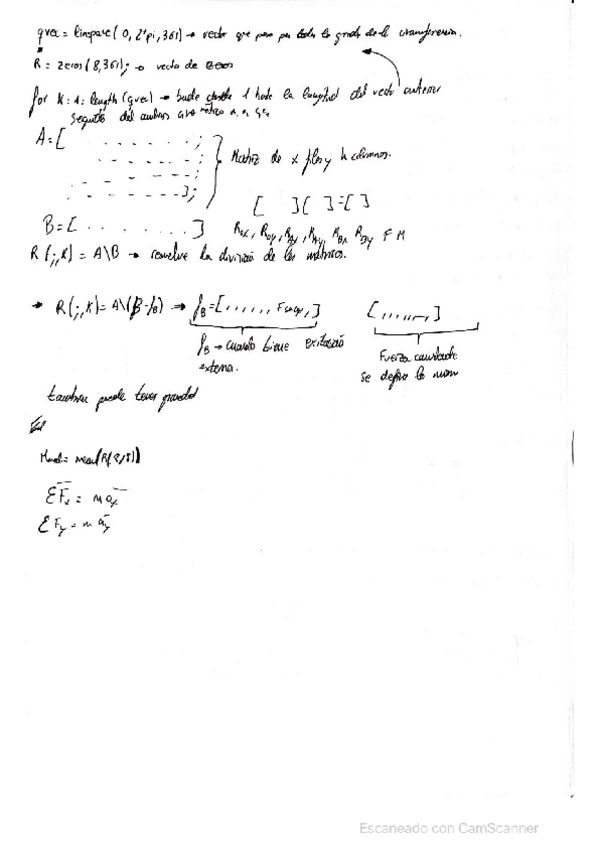 qvec = linspace(0, 2*pi, 361) → vector que pasa por todos los grados de la circunferencia.
R = zeros(8,361); → vector de zeros
for K = 1: length(qvec) → bucle desde 1 hasta la longitud del vector anterior
seguido del
A = [ . . . . . . ;
- - - - - ;
- - - - - ;
- - - - - ];
Matriz de x filas y n columnas.
[ ] [ ] = [ ]
B = [ . . . . . . . ]
Rox, Roy, RAx, RAy, RBx, RBy F M
R(:,K) = A\B → resuelve la división de las matrices.
→ R(:,K) = A\(B-fB) → fB = [ , , , , , , ]
[ , , , , , , ]
fB → cuando tiene exitación
externa.
Fuerza
se define la misma
tambien puede tener gravedad
= mean(R(8,:))
ΣFx = m ax
ΣFy = m ay
Escaneado con CamScanner